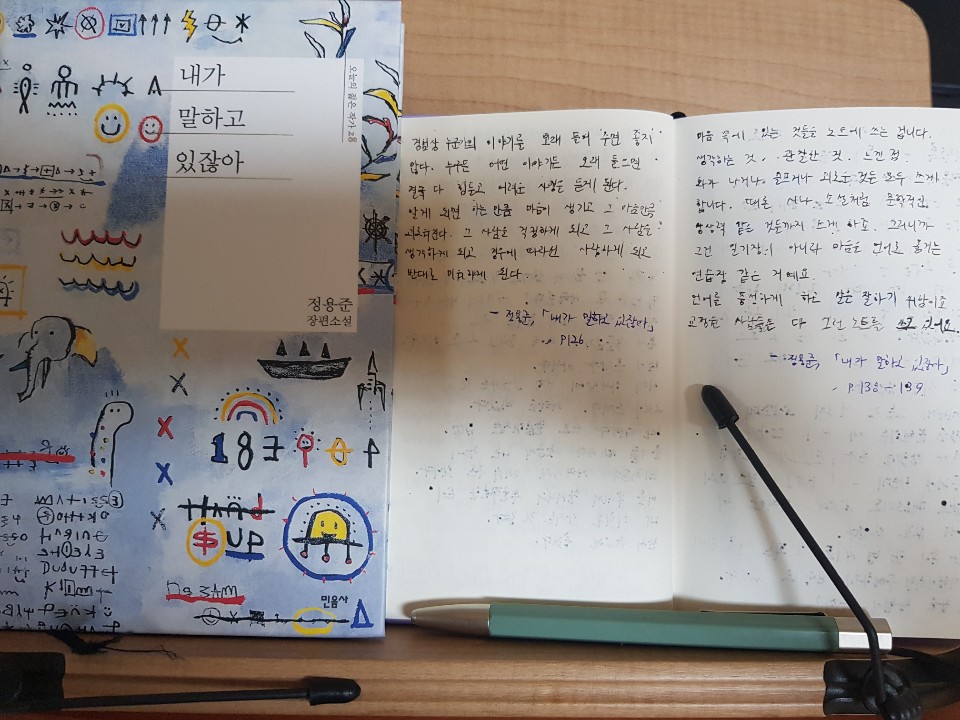 내가
말하고
있잖아
오늘의 젊은 작가 28
정용준
장편소설
187
$ UP
민음사
경험상 누군의 이야기를 오래 들어 주면 좋지
않다. 누구든 어떤 이야기든 오래 들으면
결국 다 힘들고 어려운 사정을 듣게 된다.
알게 되면 아는 만큼 마음이 생기고 그 마음만큼
괴로워진다. 그 사람을 걱정하게 되고 그 사람을
생각하게 되고 경우에 따라선 사랑하게 되고
반대로 미워하게 된다.
- 정용준, 「내가 말하고 있잖아」
p136
마음 속에 있는 것들을 노트에 쓰는 겁니다.
생각하는 것, 관찰한 것, 느낀 점
화가 나거나 슬프거나 괴로운 것들 모두 쓰게
합니다. 때론 시나 소설처럼 문학적인,
상상력 같은 것들까지 쓰게 하죠. 그러니까
그건 일기장이 아니라 마음을 언어로 옮기는
연습장 같은 거예요.
언어를 풍성하게 하고 말을 잘하기 위함이죠
교정원 사람들은 다 그런 노트를 쓰고 있어요.
- 정용준, 「내가 말하고 있잖아」
p 138 - 139